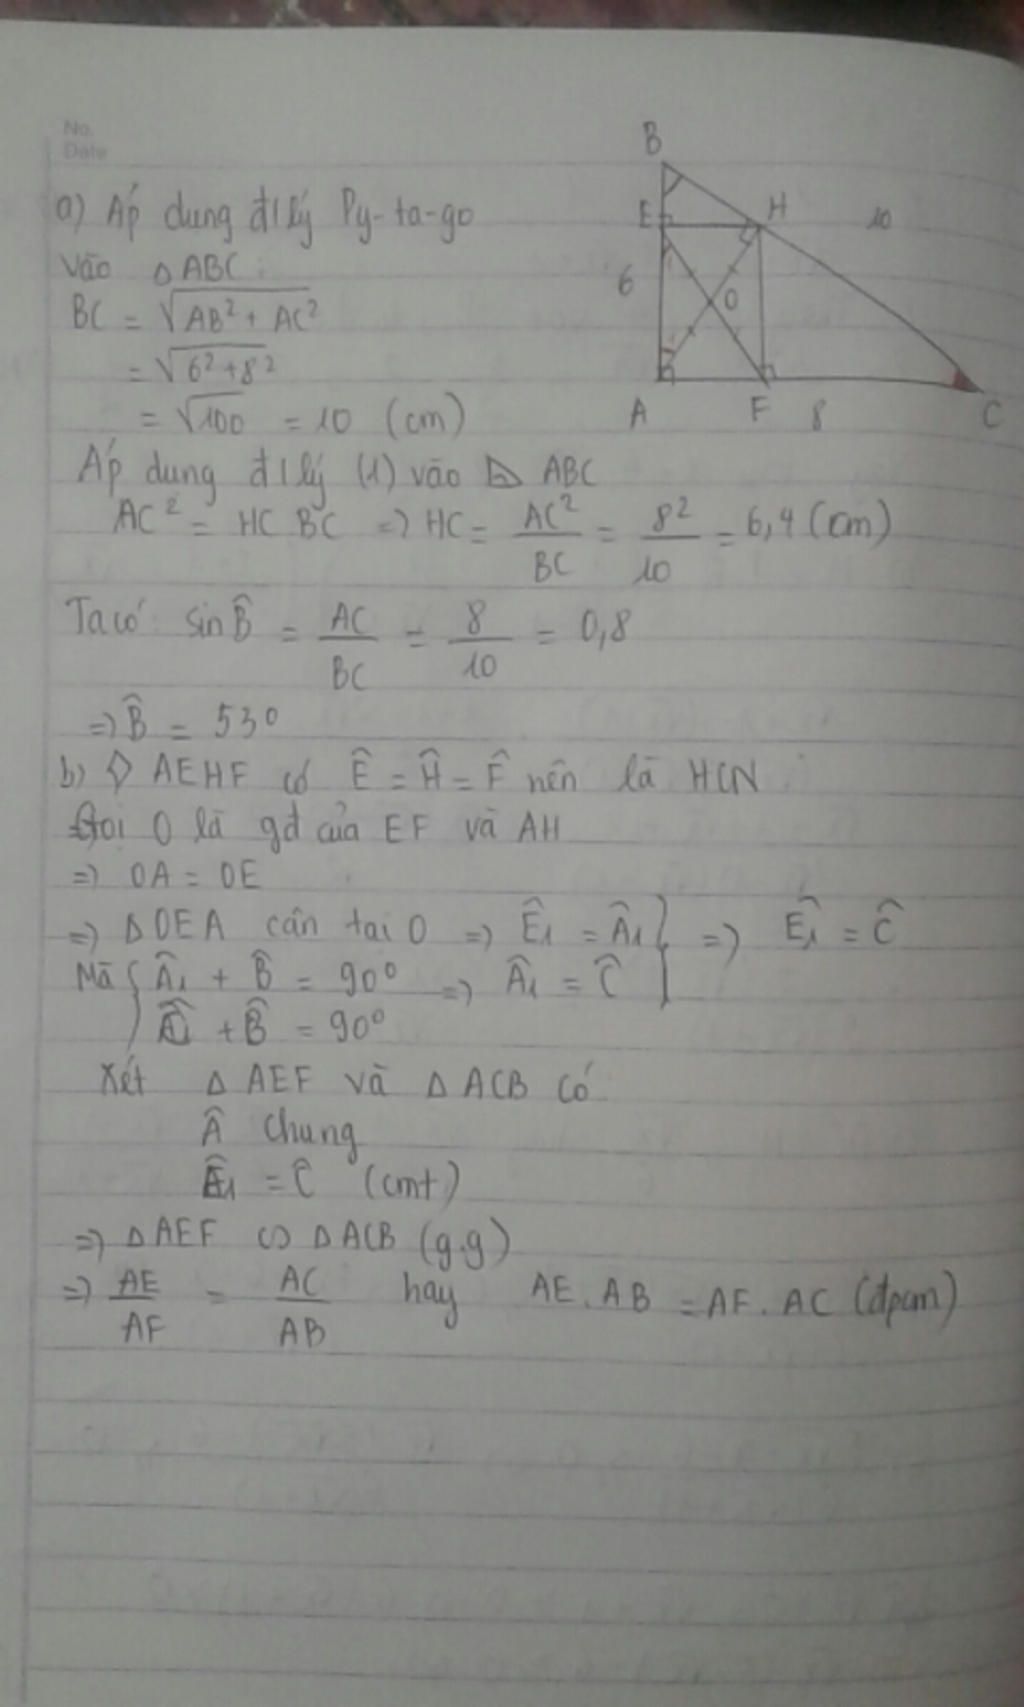 No.
Date
a) Áp dung đ/lý Py-ta-go
Vào △ ABC:
BC = √AB² + AC²
= √6²+8²
= √100 = 10 (cm)
B
E
H
10
6
O
A
F
8
C
Áp dung đ/lý (1) vào ◺ ABC
AC² = HC BC => HC = AC²/BC = 8²/10 = 6,4 (cm)
Ta có: sin B̂ = AC/BC = 8/10 = 0,8
=> B̂ = 53°
b) ◊ AEHF có Ê = Ĥ = F̂ nên là HCN
Gọi O là gđ của EF và AH
=> OA = OE
=> △ OEA cân tai O => Ê₁ = Â₁ } => Ê₁ = Ĉ
Mà { Â₁ + B̂ = 90° => Â₁ = Ĉ
Ĉ + B̂ = 90°
Xét △ AEF và △ ACB có
Â chung
Ê₁ = Ĉ (cmt)
=> △ AEF ∽ △ ACB (g.g)
=> AE/AF = AC/AB hay AE. AB = AF. AC (đpcm)